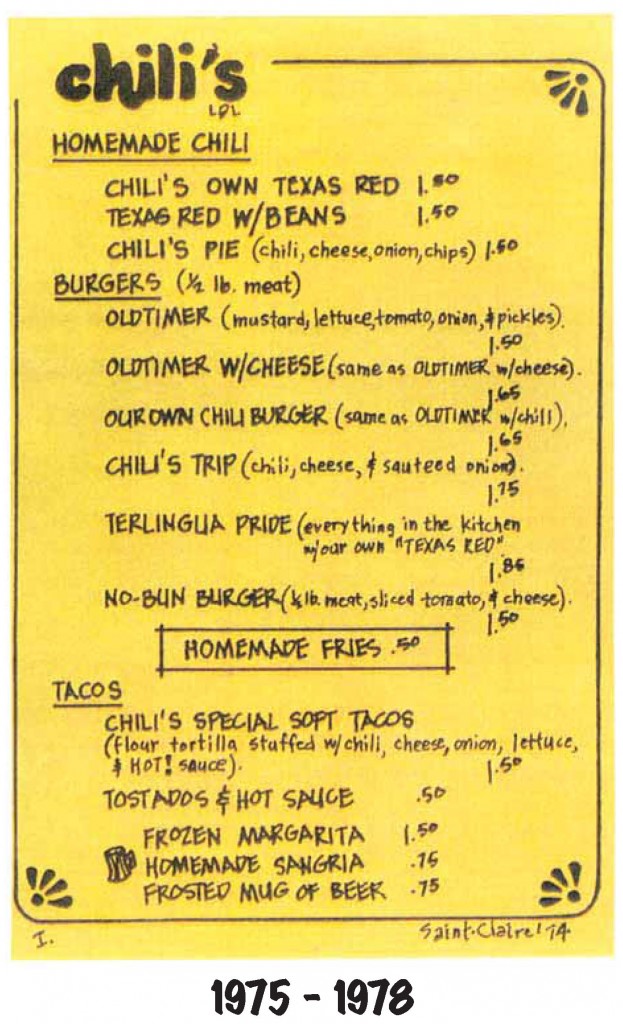 chili's
LDL
HOMEMADE CHILI
CHILI'S OWN TEXAS RED 1.50
TEXAS RED W/BEANS 1.50
CHILI'S PIE (chili, cheese, onion, chips) 1.50
BURGERS (½ lb. meat)
OLDTIMER (mustard, lettuce, tomato, onion, & pickles).
1.50
OLDTIMER W/CHEESE (same as OLDTIMER w/cheese).
1.65
OUR OWN CHILI BURGER (same as OLDTIMER w/chili).
1.65
CHILI'S TRIP (chili, cheese, & sauteed onion).
1.75
TERLINGUA PRIDE (everything in the kitchen
w/our own "TEXAS RED"
1.85
NO-BUN BURGER (½ lb. meat, sliced tomato, & cheese).
1.50
HOMEMADE FRIES .50
TACOS
CHILI'S SPECIAL SOFT TACOS
(flour tortilla stuffed w/chili, cheese, onion, lettuce,
& HOT! sauce).
1.50
TOSTADOS & HOT SAUCE .50
FROZEN MARGARITA 1.50
HOMEMADE SANGRIA .75
FROSTED MUG OF BEER .75
I.
Saint-Claire '74
1975 - 1978